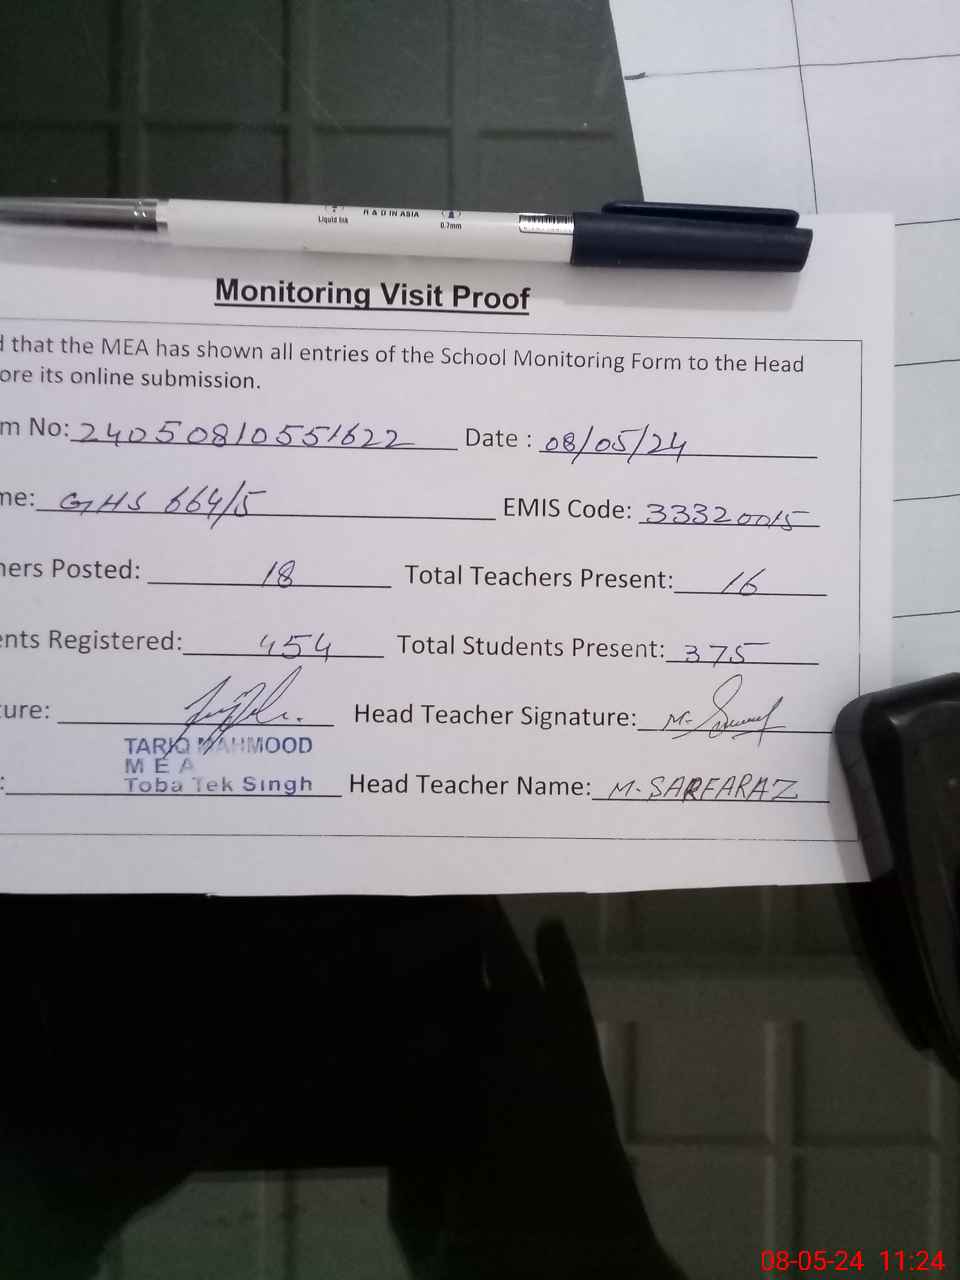 Liquid Ink R & D IN ASIA 0.7mm
Monitoring Visit Proof
d that the MEA has shown all entries of the School Monitoring Form to the Head
ore its online submission.
m No: 24050810551622 Date : 08/05/24
me: GHS 664/5 EMIS Code: 33320015
hers Posted: 18 Total Teachers Present: 16
ents Registered: 454 Total Students Present: 375
ture: Head Teacher Signature: M.
TARIQ MAHMOOD
M E A
Toba Tek Singh
: Head Teacher Name: M. SARFARAZ
08-05-24 11:24